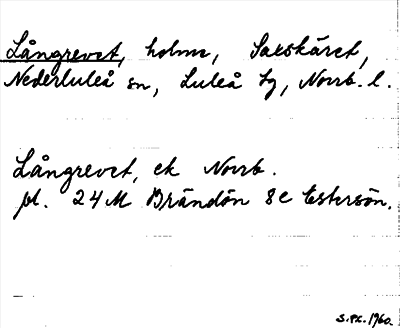 Långrevet, holme, Saxskäret,
Nederluleå sn, Luleå tg, Norrb. l.
Långrevet, ek Norrb.
pl. 24M Brändön 8c Estersön.
S.Px.1960.